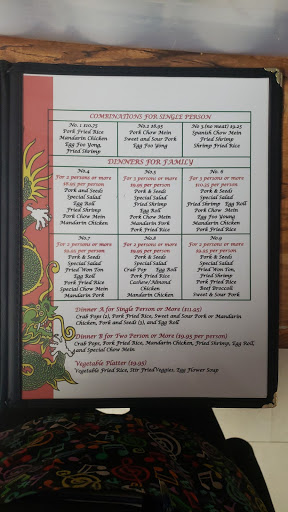 COMBINATIONS FOR SINGLE PERSON
No. 1 $10.75
Pork Fried Rice
Mandarin Chicken
Egg Foo Yong,
Fried Shrimp
No.2 $8.95
Pork Chow Mein
Sweet and Sour Pork
Egg Foo Yong
No 3 (no meat) $9.25
Spanish Chow Mein
Fried Shrimp
Shrimp Fried Rice
DINNERS FOR FAMILY
No.4
For 2 persons or more
$8.95 per person
Pork and Seeds
Special Salad
Egg Roll
Fried Shrimp
Pork Fried Rice
Pork Chow Mein
Mandarin Chicken
No.5
For 3 persons or more
$9.95 per person
Pork & Seeds
Special Salad
Fried Shrimp
Egg Roll
Pork Chow Mein
Mandarin Pork
Pork Fried Rice
No. 6
For 3 persons or more
$10.95 per person
Pork & Seeds
Special Salad
Fried Shrimp Egg Roll
Pork Chow Mein
Egg Foo Young
Mandarin Chicken
Pork Fried Rice
No.7
For 2 persons or more
$9.25 per person
Pork & Seeds
Special Salad
Fried Won Ton
Egg Roll
Pork Fried Rice
Special Chow Mein
Mandarin Pork
No.8
For 2 persons or more
per person
Pork & Seeds
Special Salad
Crab Pops Egg Roll
Pork Fried Rice
Cashew/Almond
Chicken
Mandarin Chicken
No.9
For 2 persons or more
$9.25 per person
Pork & Seeds
Special Salad
Fried Won Ton,
Fried Shrimp
Pork Fried Rice
Beef Broccoli
Sweet & Sour Pork
Dinner A for Single Person or More ($11.95)
Crab Pops (2), Pork Fried Rice, Sweet and Sour Pork or Mandarin
Chicken, Pork and Seeds (3), and Egg Roll
Dinner B for Two Person or More ($9.95 per person)
Crab Pops, Pork Fried Rice, Mandarin Chicken, Fried Shrimp, Egg Roll,
and Special Chow Mein
Vegetable Platter ($9.95)
Vegetable Fried Rice, Stir Fried Veggies, Egg Flower Soup